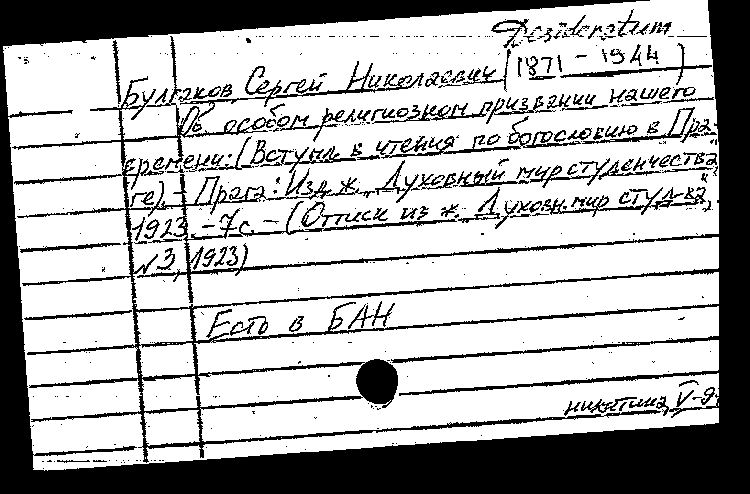 Desideratum
Булгаков, Сергей Николаевич (1871-1944)
Об особом религиозном призвании нашего
времени: (Вступл. к чтения по богословию в Пра-
ге). - Прага: Изд. ж. "Духовный мир студенчества",
1923. - 7с. - (Оттиск из ж. "Духовн. мир студ-ва",
№3, 1923)
Есть в БАН
никитина, V-9